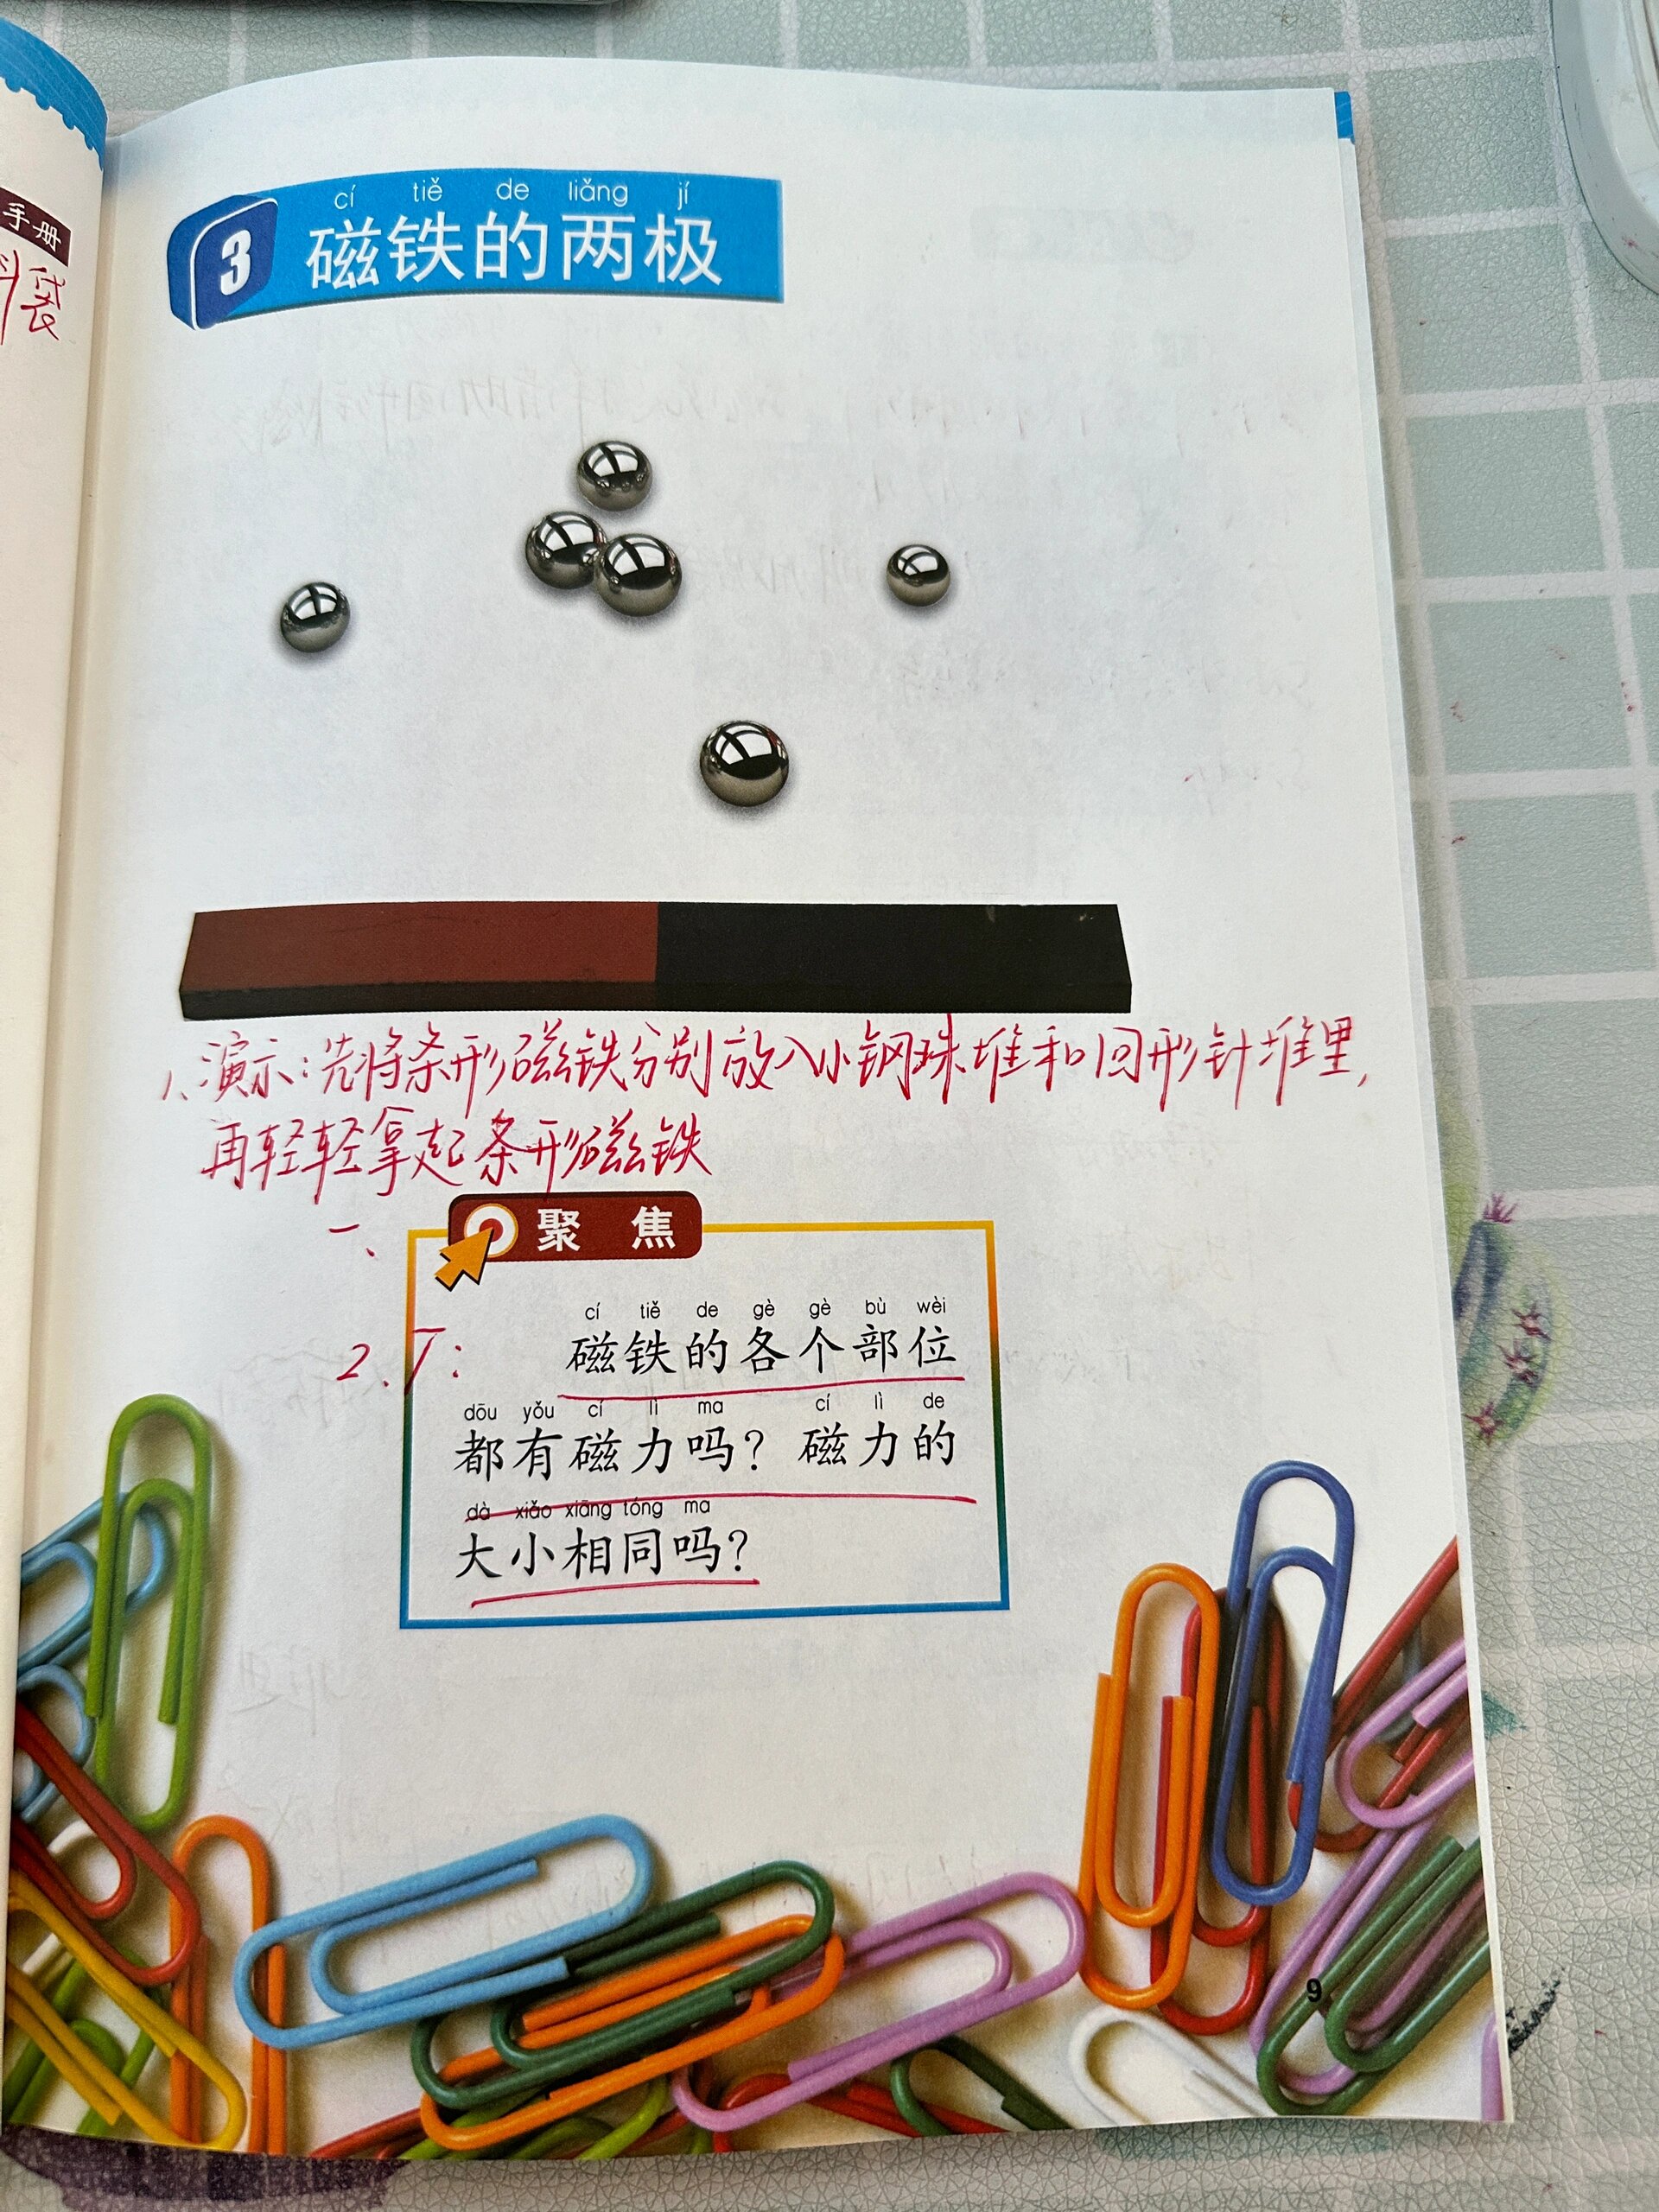 手册
袋
cí tiě de liǎng jí
3 磁铁的两极
1、演示:先将条形磁铁分别放入小钢珠堆和回形针堆里,
再轻轻拿起条形磁铁
一、
聚 焦
cí tiě de gè gè bù wèi
2、T: 磁铁的各个部位
dōu yǒu cí lì ma cí lì de
都有磁力吗? 磁力的
dà xiǎo xiāng tóng ma
大小相同吗?
9